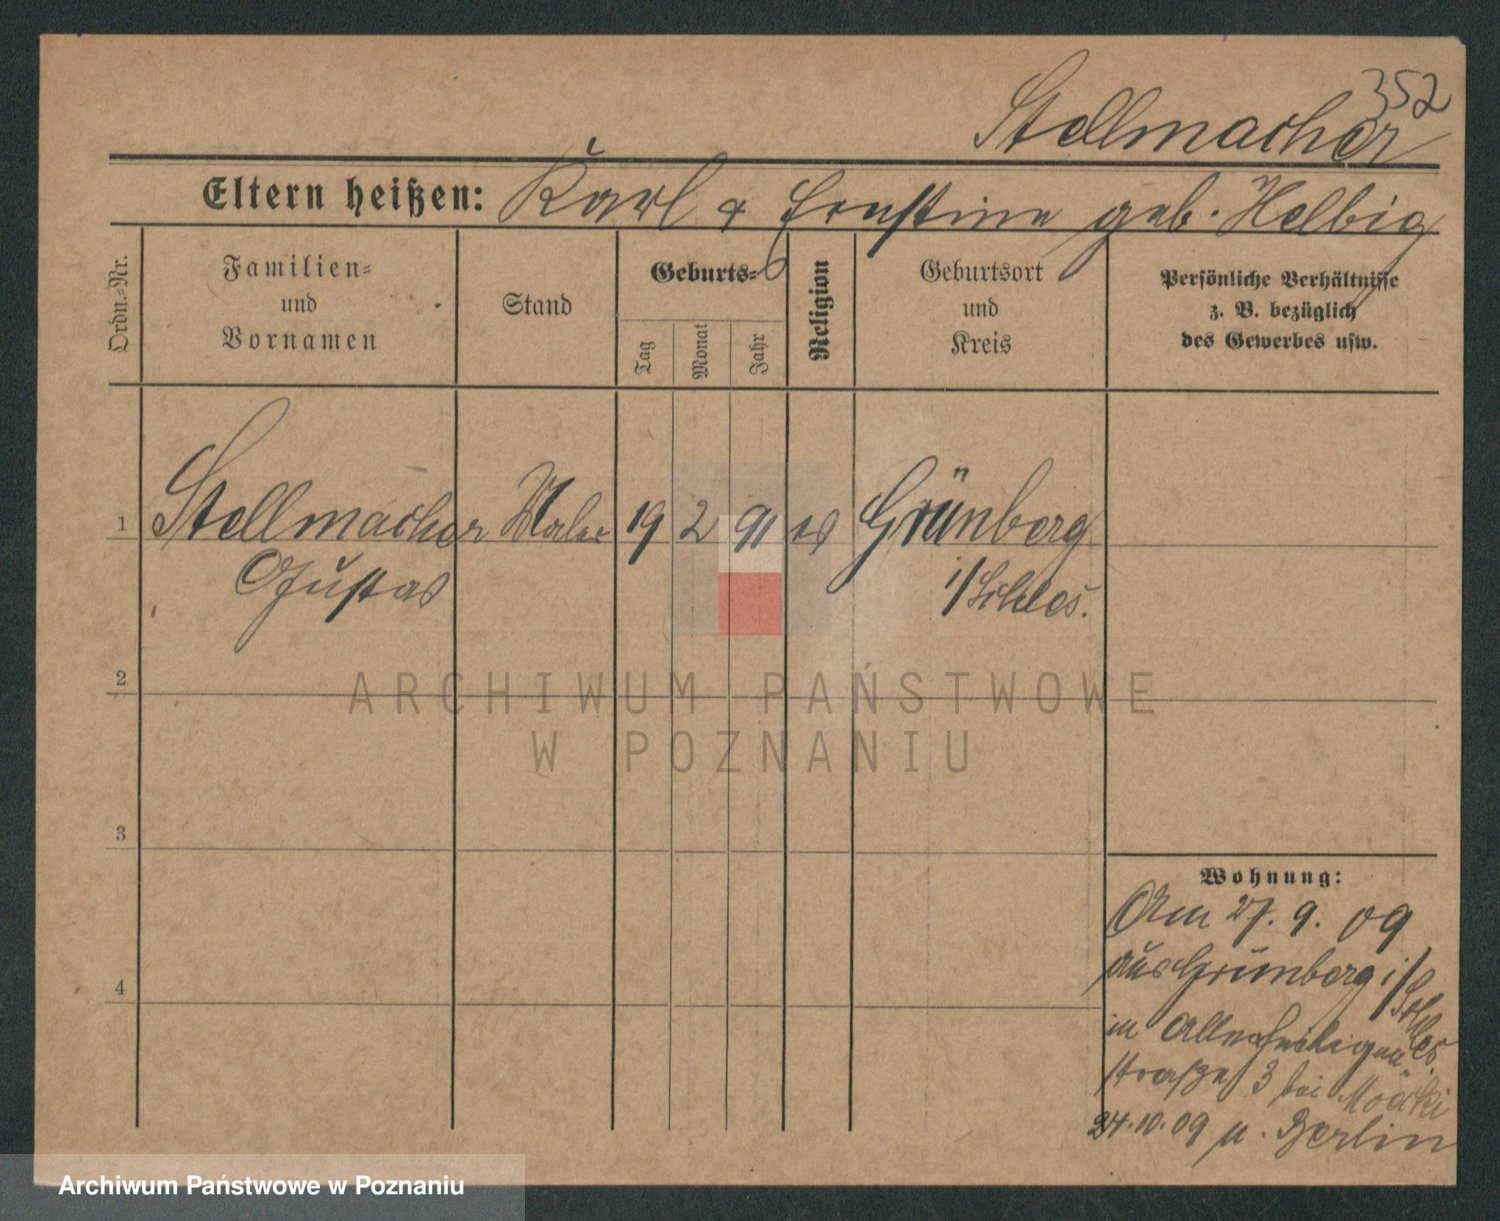 352
Stellmacher
Eltern heißen: Karl & Ernstine geb. Helbig
Ordn.-Nr.
Familien-
und
Vornamen
Stand
Geburts-
Tag
Monat
Jahr
Religion
Geburtsort
und
Kreis
Persönliche Verhältnisse
z. B. bezüglich
des Gewerbes usw.
1 Stellmacher Maler 19 2 91 ev Grünberg
Gustav i/Schles.
2
3
4
ARCHIWUM PAŃSTWOWE
W POZNANIU
Wohnung:
Am 27. 9. 09
aus Grünberg i/Schles.
in Allerheiligen
straße 3 bei
24.10.09 n. Berlin
Archiwum Państwowe w Poznaniu